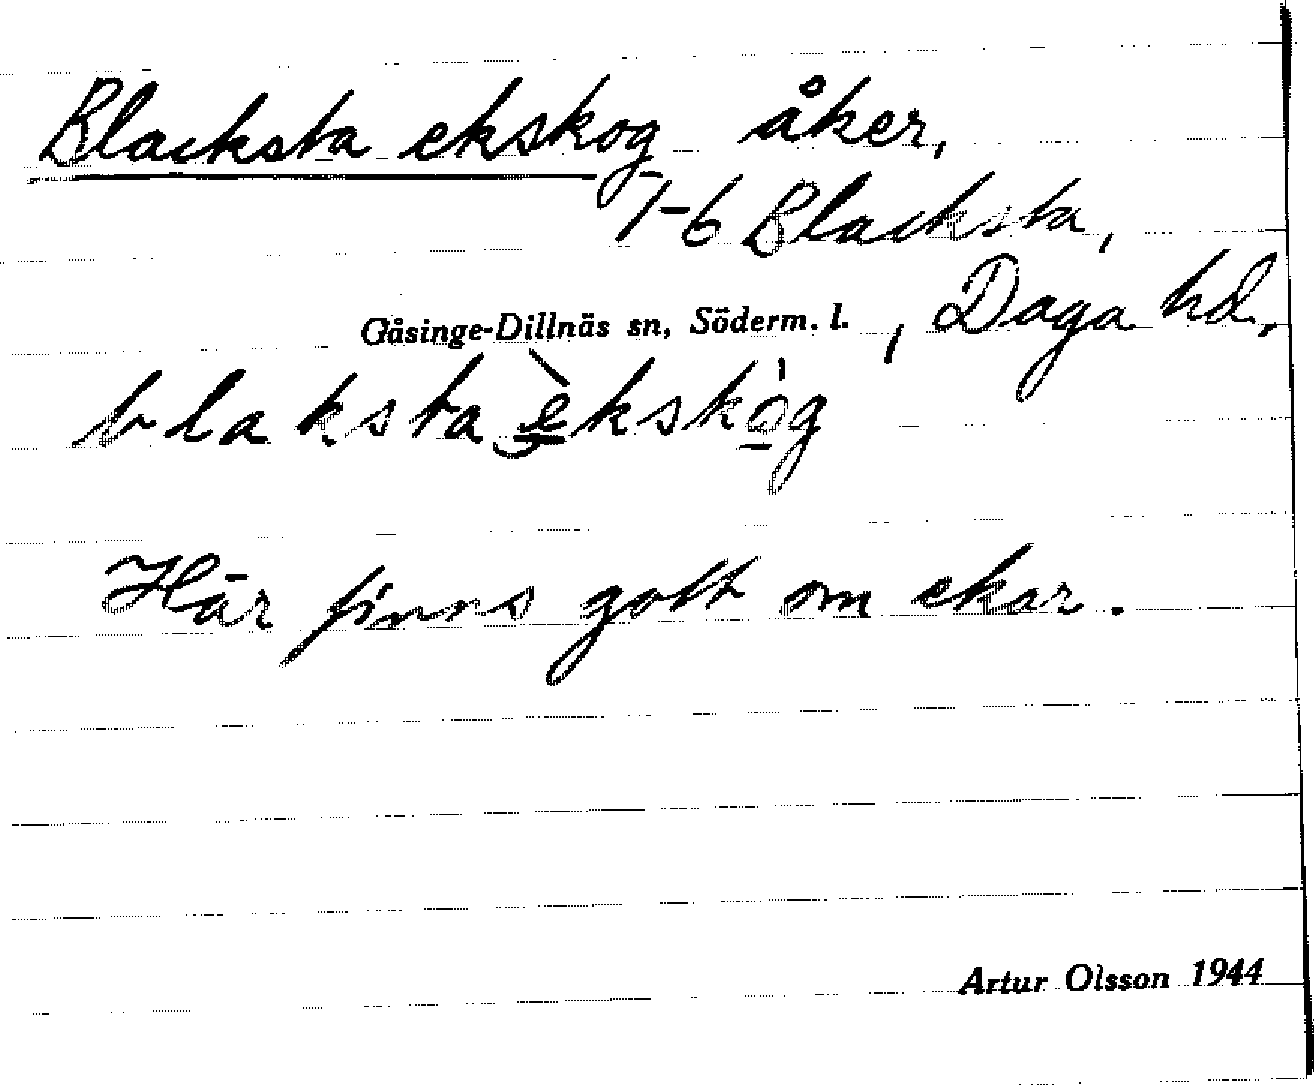 Blacksta ekskog åker,
1-6 Blacksta,
Gåsinge-Dillnäs sn, Söderm. l. , Daga hd.
blaksta èkskóg
Här finns gott om ekar.
Artur Olsson 1944